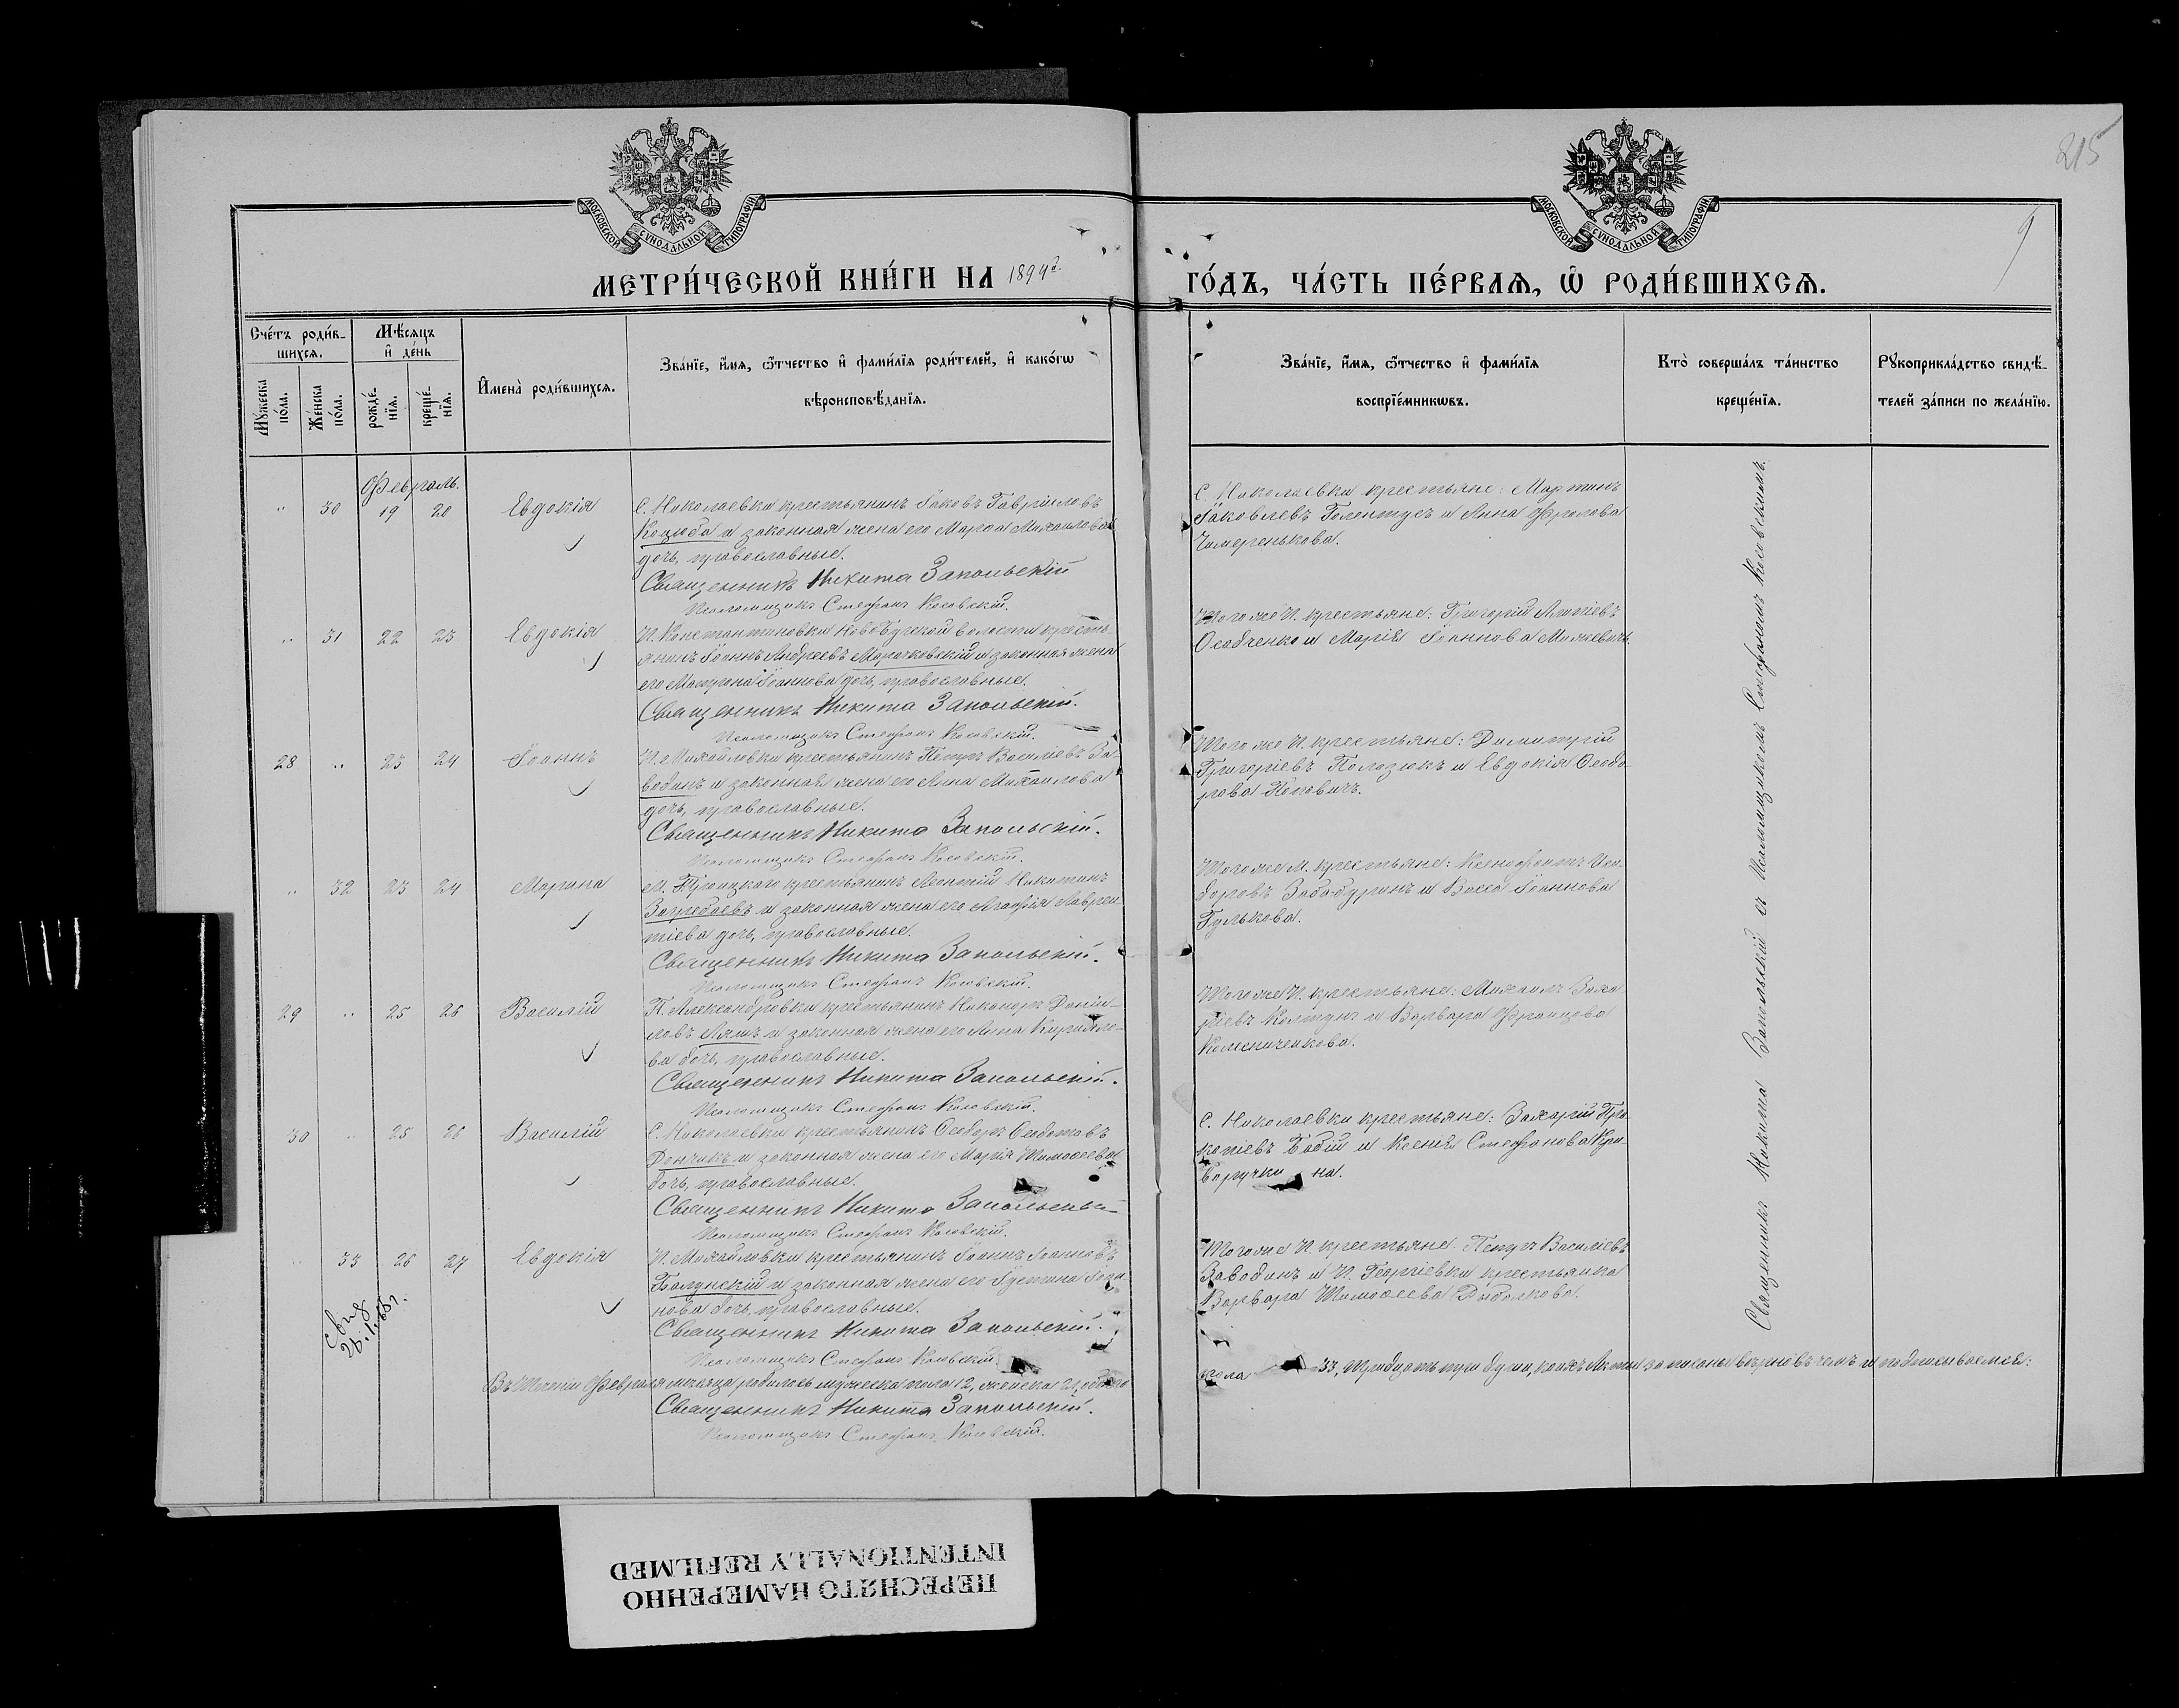 215
9
МОСКОВСКОЙ СѴНОДАЛЬНОЙ ТИПОГРАФІИ
МОСКОВСКОЙ СѴНОДАЛЬНОЙ ТИПОГРАФІИ
МЕТРИ́ЧЕСКОЙ КНИ́ГИ НА 1894 г.
ГО́ДЪ, ЧА́СТЬ ПЕ́РВАѦ, Ѡ҆ РОДИ́ВШИХСѦ.
Сче́тъ роди́в-
шихсѧ.
Мꙋ́жеска по́ла.
Же́нска по́ла.
Мѣ́сѧцъ
и҆ де́нь
рожде́-
нїѧ.
креще́-
нїѧ.
И҆мена̀ роди́вшихсѧ.
Зва́нїе, и҆́мѧ, ѻ҆́тчество и҆ фами́лїѧ роди́телей, и҆ како́гѡ
вѣроисповѣ́данїѧ.
Зва́нїе, и҆́мѧ, ѻ҆́тчество и҆ фами́лїѧ
воспрїе́мникѡвъ.
Кто̀ соверша́лъ та́инство
креще́нїѧ.
Рꙋкоприкла́дство свидѣ́-
телей за́писи по жела́нїю.
Февраль.
" 30 19 20 Евдокія
С. Николаевки крестьянинъ Іаковъ Гавріиловъ
Коцюба и законная жена его Марѳа Михаилова
дочь, православные.
Священникъ Никита Запольскій
Псаломщикъ Стефанъ Косовскій.
С. Николаевки крестьяне: Мартинъ
Іаковлевъ Голентусъ и Анна Фролова
Чамеренькова.
" 31 22 23 Евдокія
И. Константиновки Новобугской волости кресть-
янинъ Іоаннъ Андреевъ Марачковскій и законная жена
его Матрона Іоаннова дочь, православные.
Священникъ Никита Запольскій.
Псаломщикъ Стефанъ Косовскій.
Того же И. крестьяне: Григорій
Осадченко и Марія Іоаннова
28 " 23 24 Іоаннъ
И. Михайловки крестьянинъ Петръ Василіевъ За-
водинъ и законная жена его Анна Михаилова
дочь, православные.
Священникъ Никита Запольскій.
Псаломщикъ Стефанъ Косовскій.
Того же И. крестьяне: Димитрій
Григоріевъ Полозюкъ и Евдокія Ѳеодо-
рова Поповичъ.
" 32 23 24 Марина
М. Троицкаго крестьянинъ Леонтій Никитинъ
Загребаевъ и законная жена его Агафія Лаврен-
тіева дочь, православные.
Священникъ Никита Запольскій.
Псаломщикъ Стефанъ Косовскій.
Того же М. крестьяне: Ксенофонтъ Иси-
доровъ Забабуринъ и Васса Іоаннова
Гулькова.
29 " 25 26 Василій
П. Александровки крестьянинъ Никаноръ Даніи-
ловъ Лямъ и законная жена его Анна Кирилло-
ва дочь, православные.
Священникъ Никита Запольскій.
Псаломщикъ Стефанъ Косовскій.
Того же И. крестьяне: Михаилъ Заха-
ріевъ Колтунъ и Варвара Францова
Колесниченкова.
30 " 25 26 Василій
С. Николаевки крестьянинъ Ѳеодоръ Ѳеодотовъ
Дончикъ и законная жена его Марія Тимоѳеева
дочь, православные.
Священникъ Никита Запольскій
Псаломщикъ Стефанъ Косовскій.
С. Николаевки крестьяне: Захарій Про-
копіевъ Бабій и Ксенія Стефанова Кри-
воручкина.
" 33 26 27 Евдокія
И. Михайловки крестьянинъ Іоаннъ Іоанновъ
Балунскій и законная жена его Іустина Іоан-
нова дочь, православные.
Священникъ Никита Запольскій.
Псаломщикъ Стефанъ Косовскій.
Того же И. крестьяне: Петръ Василіевъ
Заводинъ и И. Георгіевки крестьянка
Варвара Тимоѳеева Рыбалкова.
Священникъ Никита Запольскій съ Псаломщикомъ Стефаномъ Косовскимъ.
Въ Февраля мѣсяца родилось мужеска пола 12, женска 21, обоего
пола 33, тридцать три души, записаны вѣрно въ чемъ и подписываемся:
Священникъ Никита Запольскій.
Псаломщикъ Стефанъ Косовскій.
ПЕРЕСНЯТО НАМЕРЕННО
INTENTIONALLY REFILMED